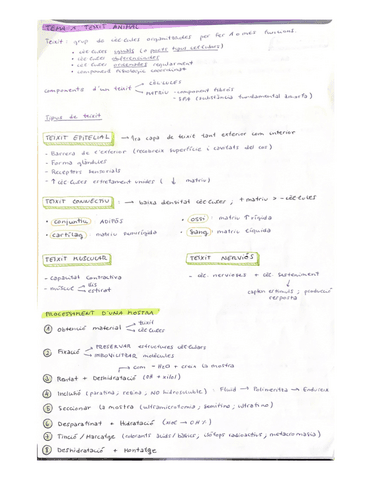 TEMA 1: TEIXIT ANIMAL
Teixit: grup de cèl·lules organitzades per fer 1 o més funcions.
• cèl·lules iguals (o pocs tipus cel·lulars)
• cèl·lules diferenciades
• cèl·lules ordenades regularment
• component fisiològic coordinat
Components d'un teixit → CÈL·LULES
→ MATRIU - component fibrós
- SFA (substància fonamental amorfa)
Tipus de teixit
TEIXIT EPITELIAL → 1ra capa de teixit tant exterior com interior
- Barrera de l'exterior (recobreix superfície i cavitats del cos)
- Forma glàndules
- Receptors sensorials
- ↑ cèl·lules estretament unides (↓ matriu)
TEIXIT CONNECTIU → baixa densitat cèl·lules; + matriu > - cèl·lules
• conjuntiu: ADIPÓS • ossi: matriu ↑ rígida
• cartílag: matriu rígida • sang: matriu líquida
TEIXIT MUSCULAR TEIXIT NERVIÓS
- capacitat contractiva - cèl. nervioses + cèl. sosteniment
- múscul llis estriat
capten estímuls; producció resposta
PROCESSAMENT D'UNA MOSTRA
① Obtenció material → teixit
→ cèl·lules
② Fixació → PRESERVAR estructures cel·lulars
→ IMMOBILITZAR molècules
la mostra
③ Rentat + Deshidratació (OH + xilol)
④ Inclusió (parafina, resina, NO hidrosoluble): Fluid → Polimeritza → Endureix
⑤ Seccionar la mostra
⑥ Desparafinat + Hidratació
⑦ Tinció / Marcatge (colorants àcids/bàsics,
⑧ Deshidratació + Muntatge